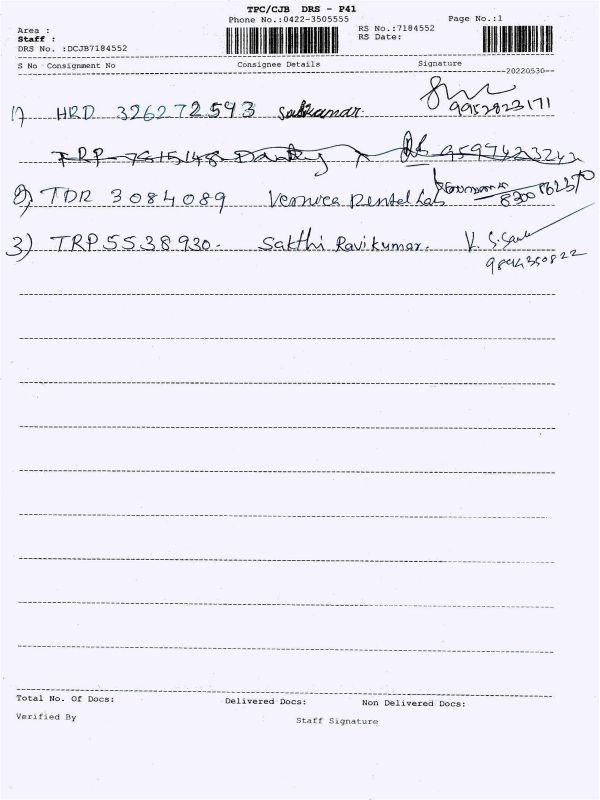 TPC/CJB DRS - P41
Phone No.:0422-3505555 Page No.:1
Area : RS No.:7184552
Staff : RS Date:
DRS No. :DCJB7184552
S No Consignment No Consignee Details Signature
20220530
1) HRD 326272593
9952823171
TRP 7615148 9597423242
2) TDR 3084089 Vernica Dental Lab
8300862370
3) TRP 5538930. Sakthi Ravikumar.
9894350822
Total No. Of Docs: Delivered Docs: Non Delivered Docs:
Verified By Staff Signature